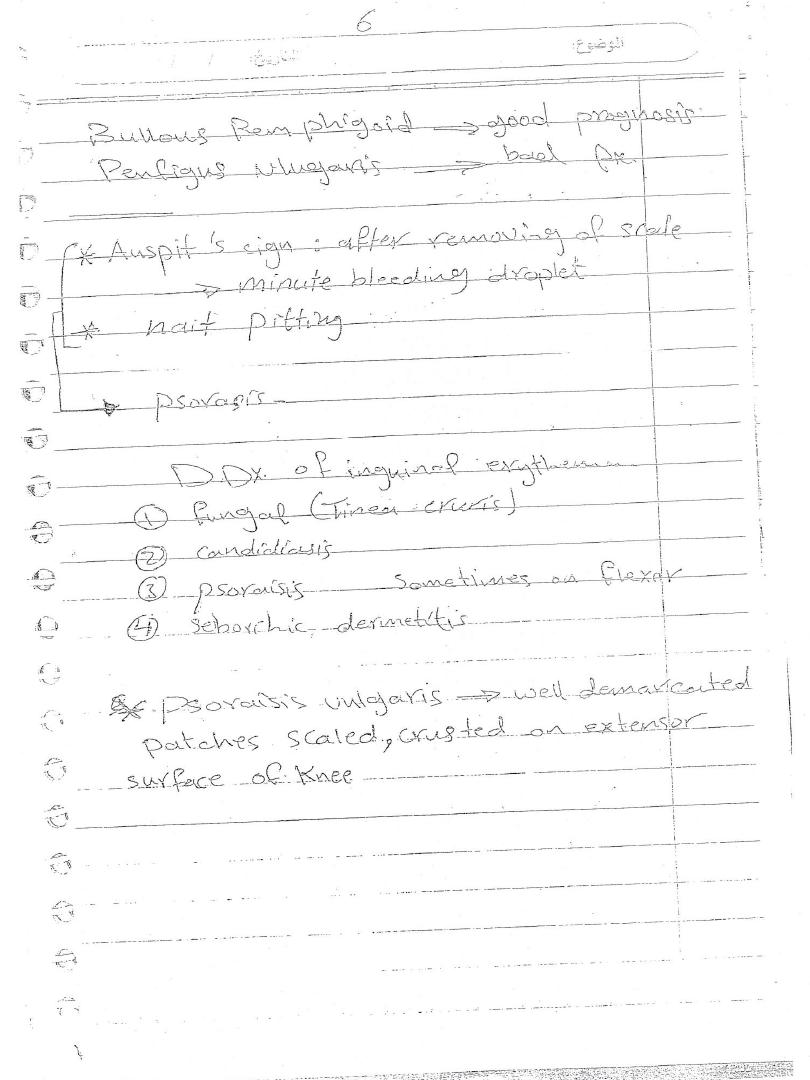 6
الموضوع:
التاريخ: / /
Bullous Pemphigoid → good prognosis
Penfigus vlugaris → bad Px
* Auspit's sign : after removing of scale
→ minute bleeding droplet
* nail pitting
→ psorasis
D.Dx. of inguinal erythema
① fungal (Tinea cruris)
② candidiasis
③ psoraisis sometimes on flexor
④ seborhic dermetitis
* psoraisis vulgaris → well demarcated
patches scaled, crusted on extensor
surface of Knee